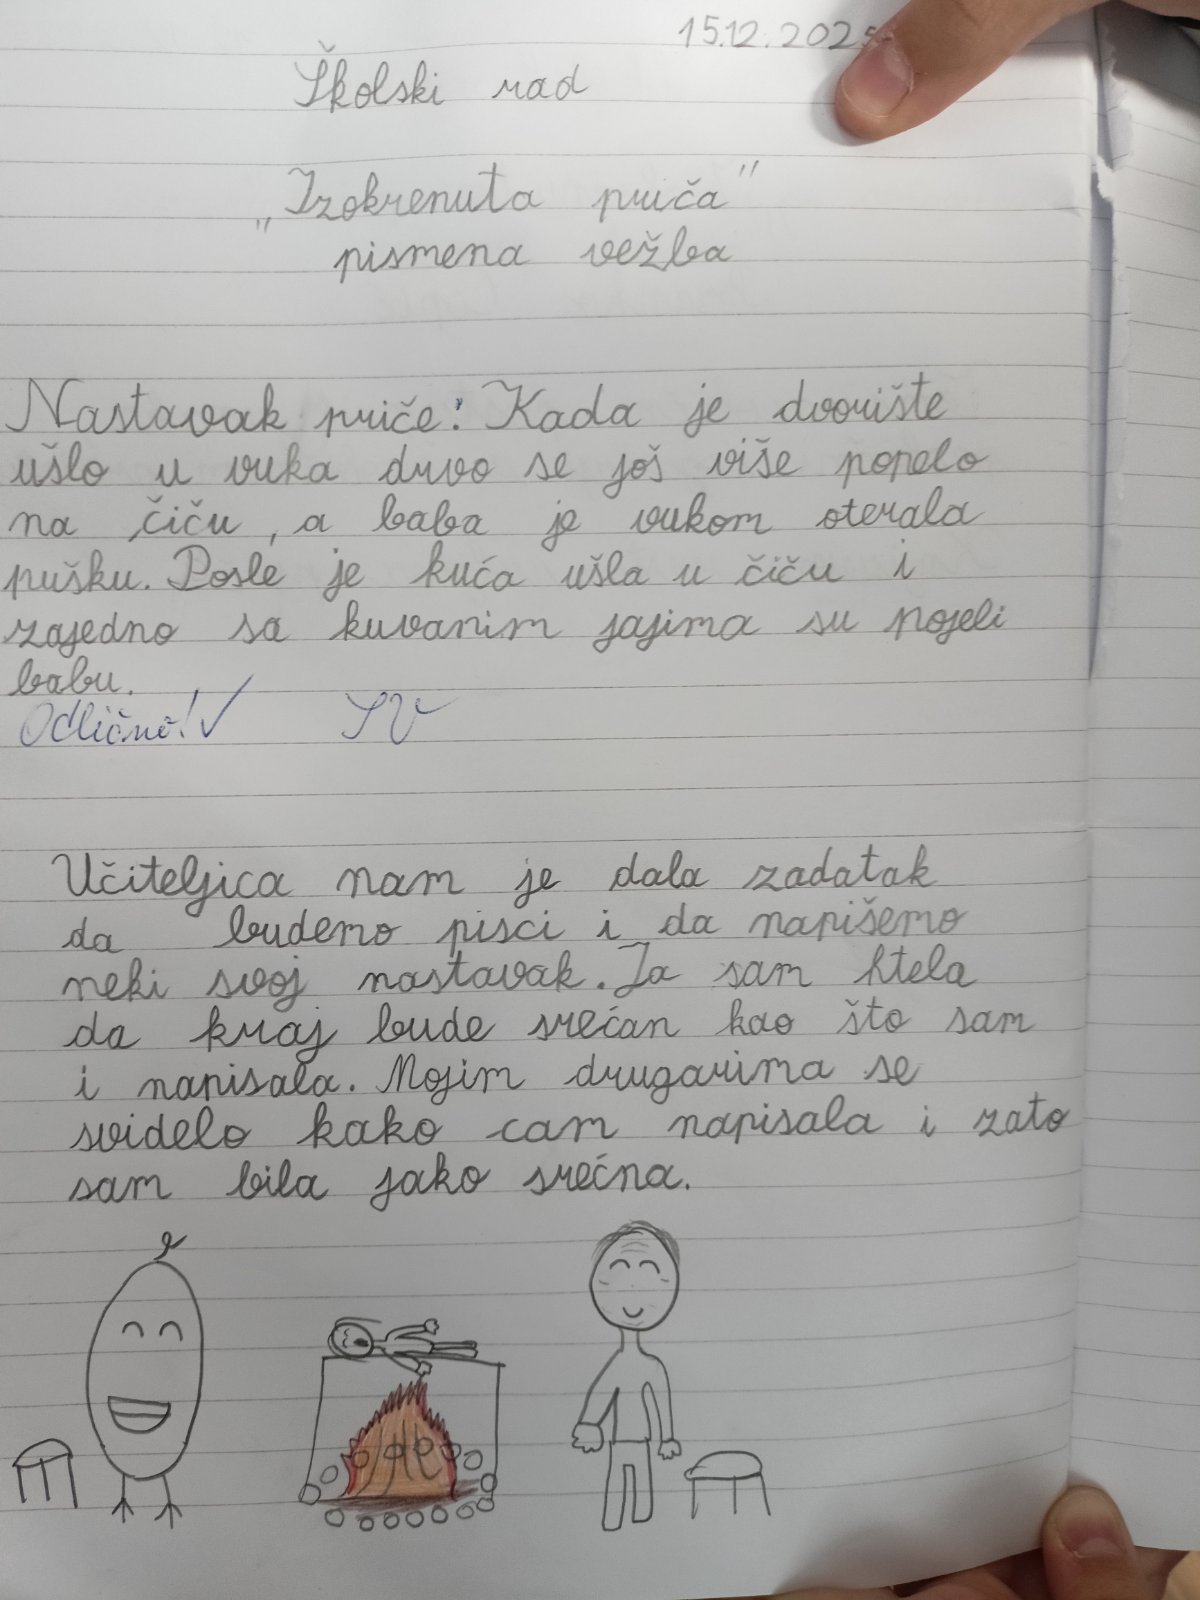 15.12.2025
Školski rad
„Izokrenuta priča"
pismena vežba
Nastavak priče: Kada je dvorište
ušlo u vuka drvo se još više popelo
na čiču, a baba je vukom oterala
pušku. Posle je kuća ušla u čiču i
zajedno sa kuvanim jajima su pojeli
babu.
Odlično! ✓ SV
Učiteljica nam je dala zadatak
da budemo pisci i da napišemo
neki svoj nastavak. Ja sam htela
da kraj bude srećan kao što sam
i napisala. Mojim drugarima se
svidelo kako cam napisala i zato
sam bila jako srećna.